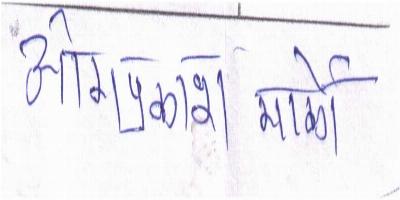 ओमप्रकाश मार्को